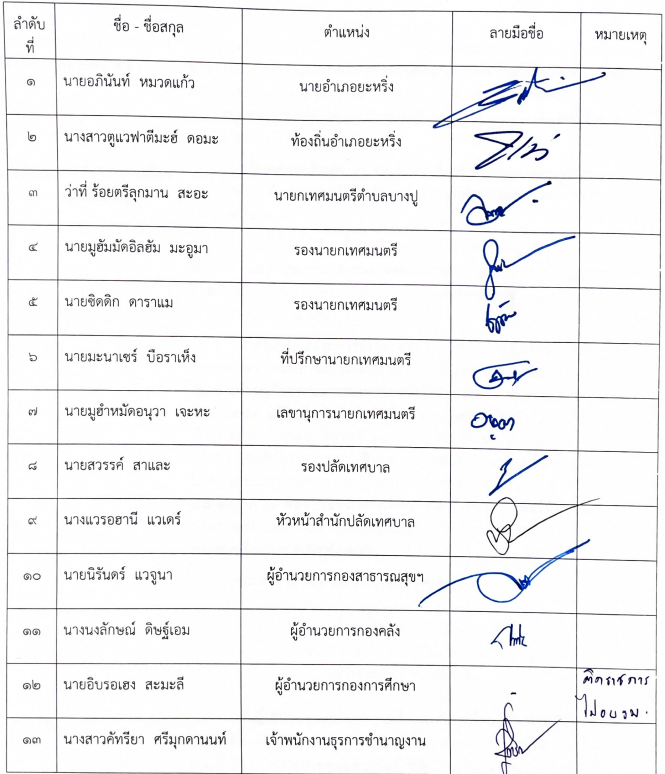 ลำดับที่ ชื่อ - ชื่อสกุล ตำแหน่ง ลายมือชื่อ หมายเหตุ
๑ นายอภินันท์ หมวดแก้ว นายอำเภอยะหริ่ง
๒ นางสาวตูแวฟาตีมะฮ์ ดอมะ ท้องถิ่นอำเภอยะหริ่ง
๓ ว่าที่ ร้อยตรีลุกมาน สะอะ นายกเทศมนตรีตำบลบางปู
๔ นายมูฮัมมัดอิลฮัม มะอูมา รองนายกเทศมนตรี
๕ นายซิดดิก ดาราแม รองนายกเทศมนตรี
๖ นายมะนาเซร์ บือราเห็ง ที่ปรึกษานายกเทศมนตรี
๗ นายมูฮำหมัดอนุวา เจะหะ เลขานุการนายกเทศมนตรี
๘ นายสวรรค์ สาและ รองปลัดเทศบาล
๙ นางแวรอฮานี แวเดร์ หัวหน้าสำนักปลัดเทศบาล
๑๐ นายนิรันดร์ แวจูนา ผู้อำนวยการกองสาธารณสุขฯ
๑๑ นางนงลักษณ์ ดิษฐ์เอม ผู้อำนวยการกองคลัง
๑๒ นายอิบรอเฮง สะมะลี ผู้อำนวยการกองการศึกษา - ติดราชการ
๑๓ นางสาวคัทรียา ศรีมุกดานนท์ เจ้าพนักงานธุรการชำนาญงาน